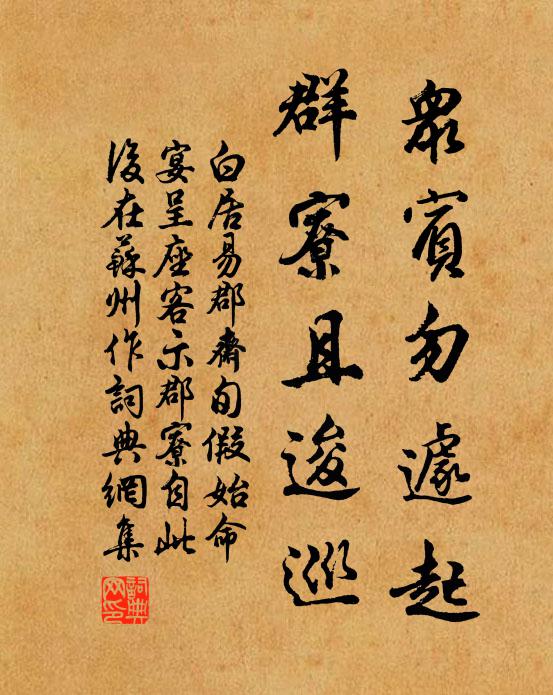 眾賓勿遽起
群寮且逡巡
白居易郡齋旬假始命
宴呈座客示郡寮自此
後在蘇州作詞典網集
詞典
网印